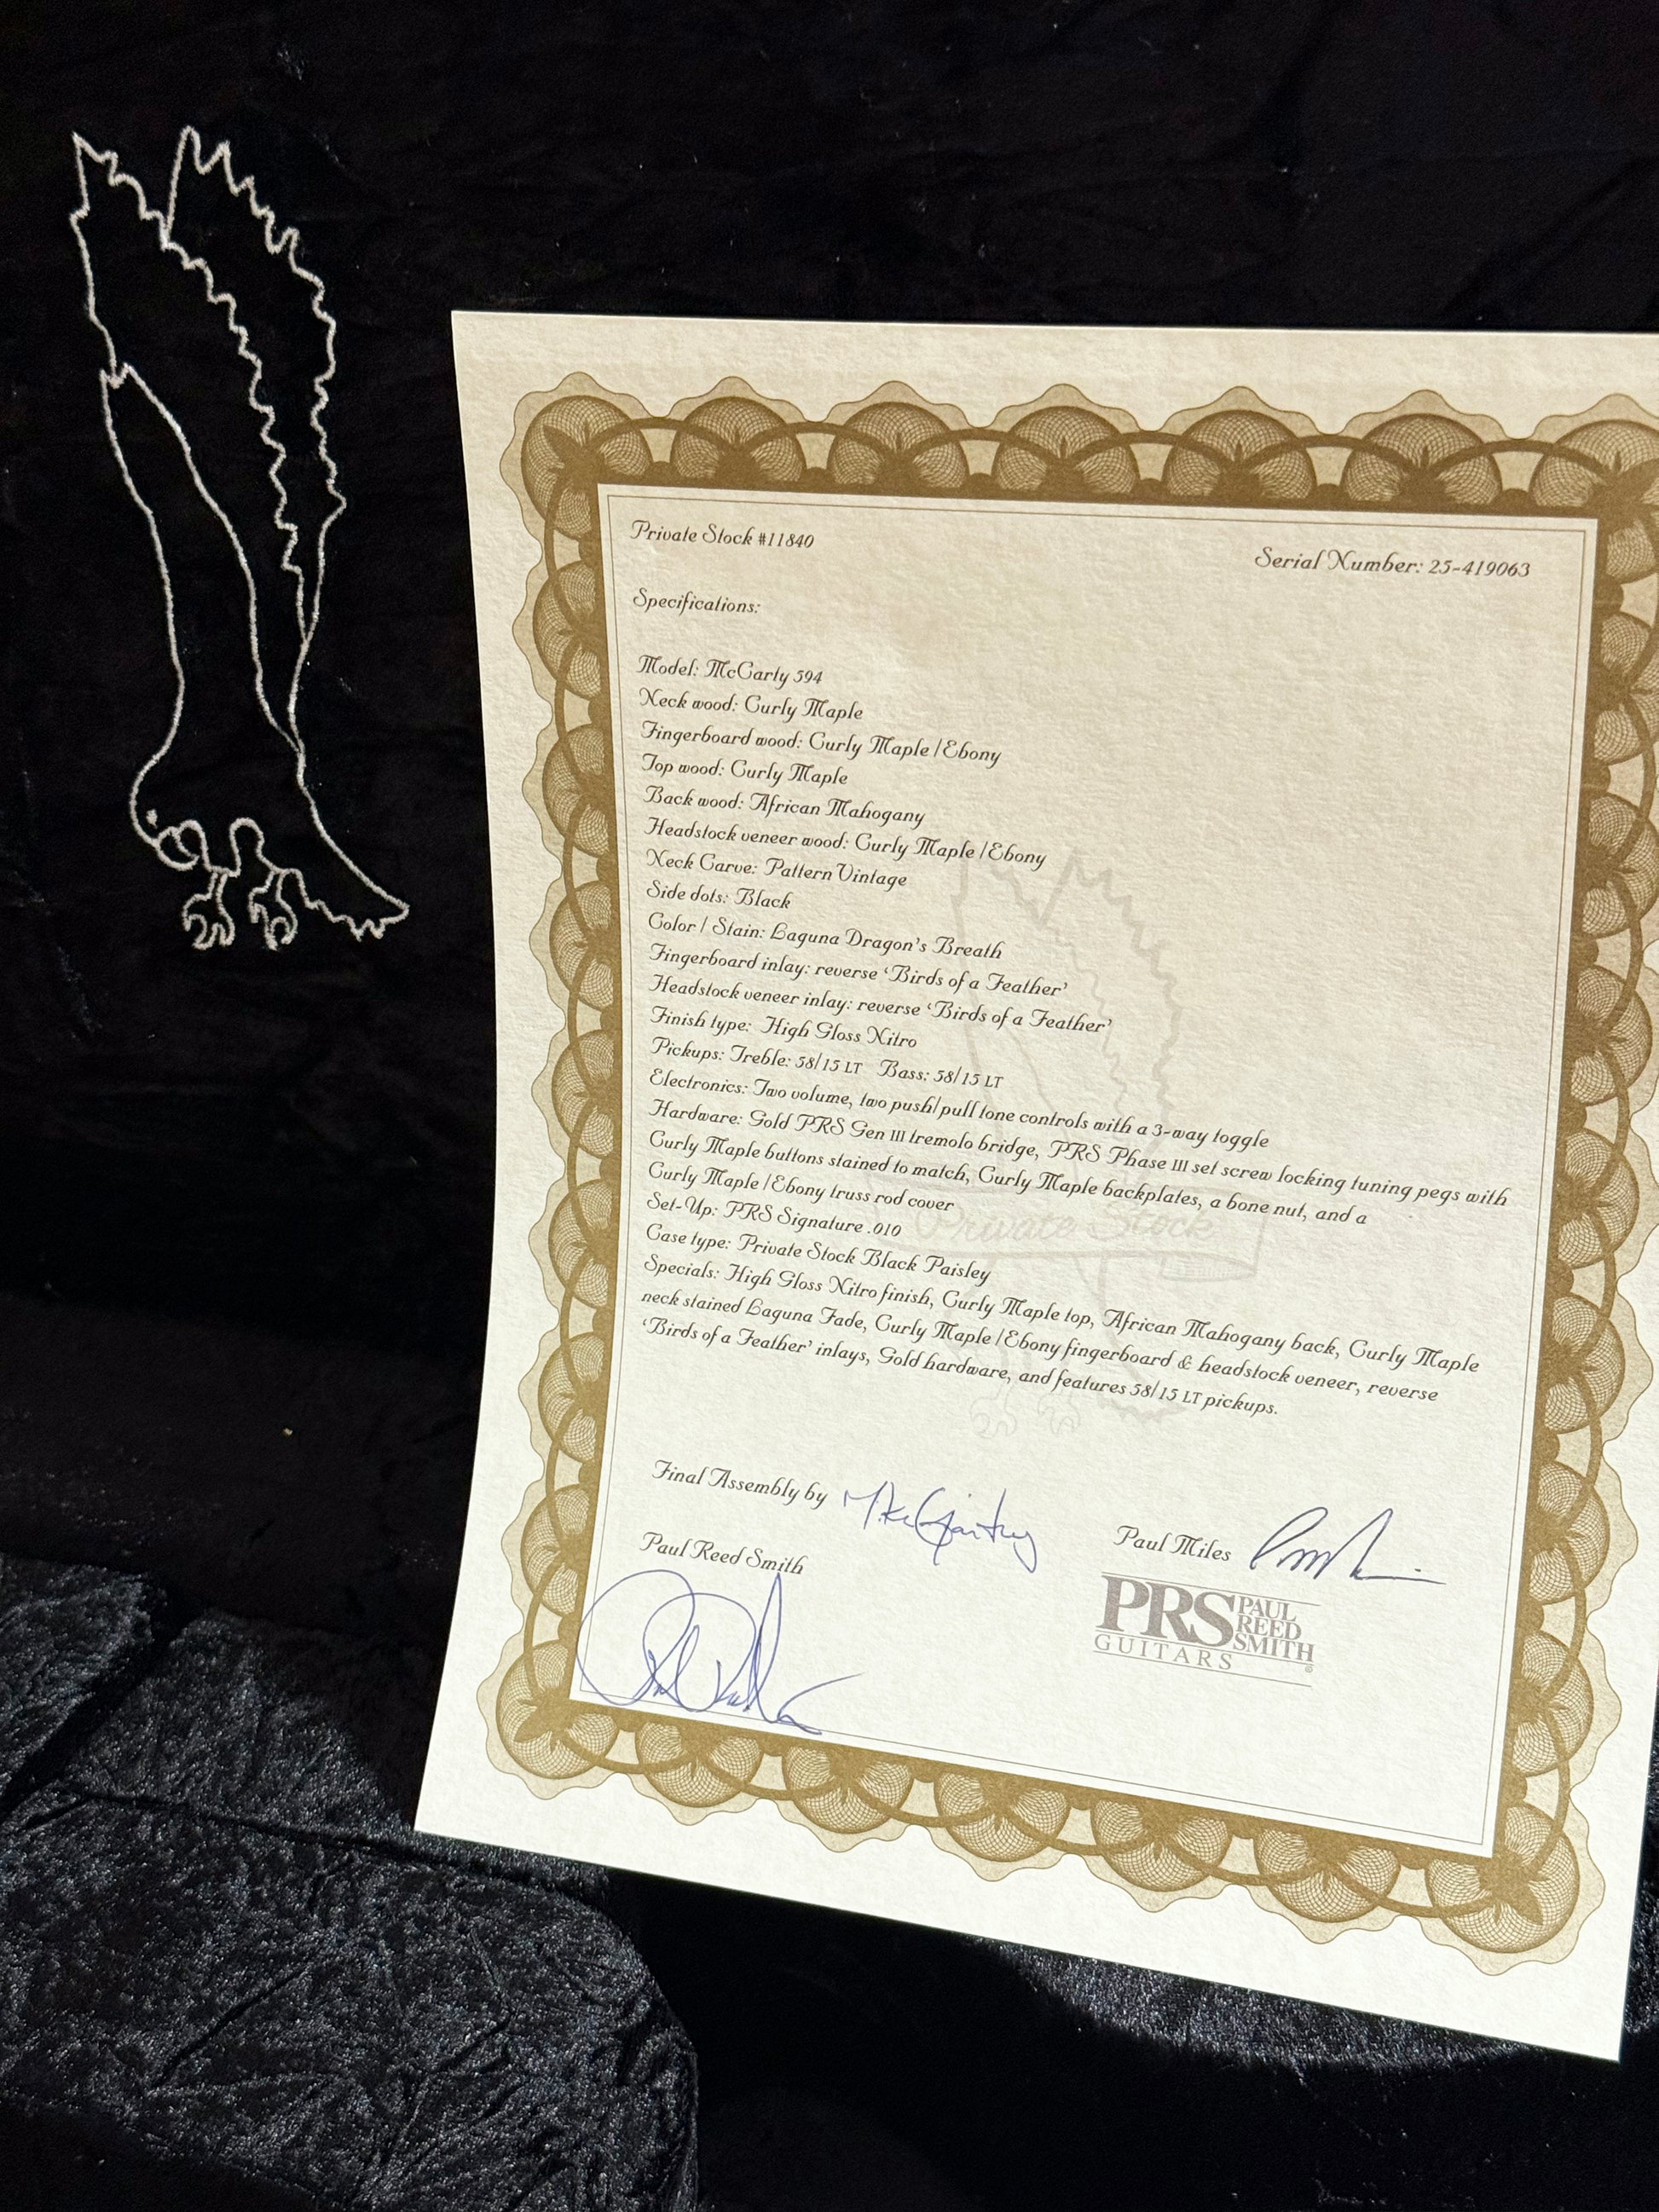 Private Stock #11840
Serial Number: 25-419063
Specifications:
Model: McCarty 594
Neck wood: Curly Maple
Fingerboard wood: Curly Maple / Ebony
Top wood: Curly Maple
Back wood: African Mahogany
Headstock veneer wood: Curly Maple / Ebony
Neck Carve: Pattern Vintage
Side dots: Black
Color / Stain: Laguna Dragon's Breath
Fingerboard inlay: reverse 'Birds of a Feather'
Headstock veneer inlay: reverse 'Birds of a Feather'
Finish type: High Gloss Nitro
Pickups: Treble: 58/15 LT Bass: 58/15 LT
Electronics: Two volume, two push/pull tone controls with a 3-way toggle
Hardware: Gold PRS Gen III tremolo bridge, PRS Phase III set screw locking tuning pegs with
Curly Maple buttons stained to match, Curly Maple backplates, a bone nut, and a
Curly Maple / Ebony truss rod cover
Set-Up: PRS Signature .010
Private Stock
Case type: Private Stock Black Paisley
Specials: High Gloss Nitro finish, Curly Maple top, African Mahogany back, Curly Maple
neck stained Laguna Fade, Curly Maple / Ebony fingerboard & headstock veneer, reverse
'Birds of a Feather' inlays, Gold hardware, and features 58/15 LT pickups.
Final Assembly by
Paul Miles
Paul Reed Smith
PRS PAUL REED SMITH
GUITARS